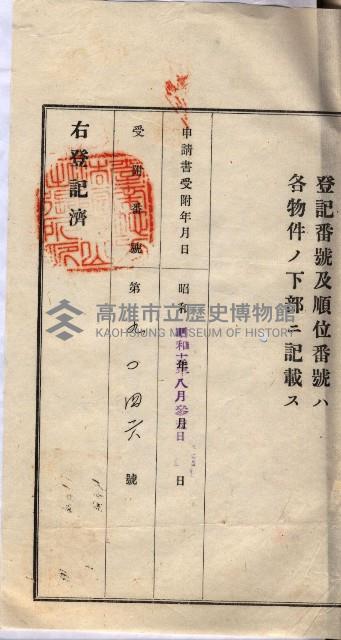 登記番號及順位番號ハ
各物件ノ下部ニ記載ス
申請書受附年月日 昭和 年 月 日
昭和十 年八月
受附番號 第九〇四六號
右登記濟
高雄市立歷史博物館
KAOHSIUNG MUSEUM OF HISTORY